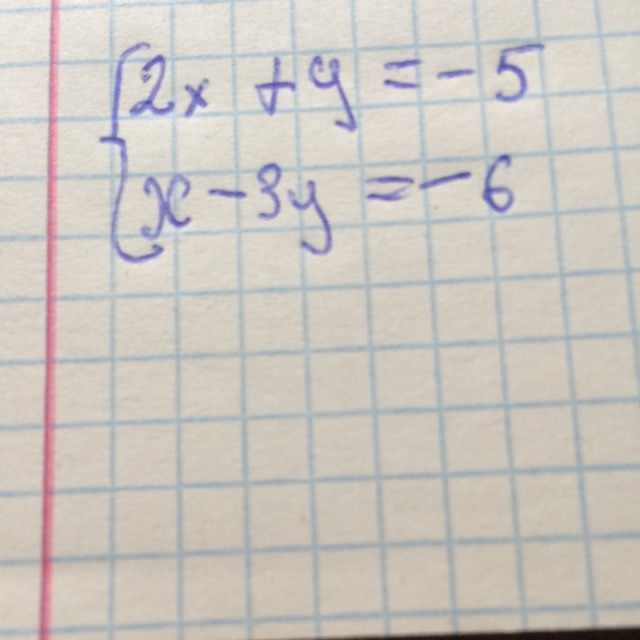 {2x + y = -5
{x - 3y = -6